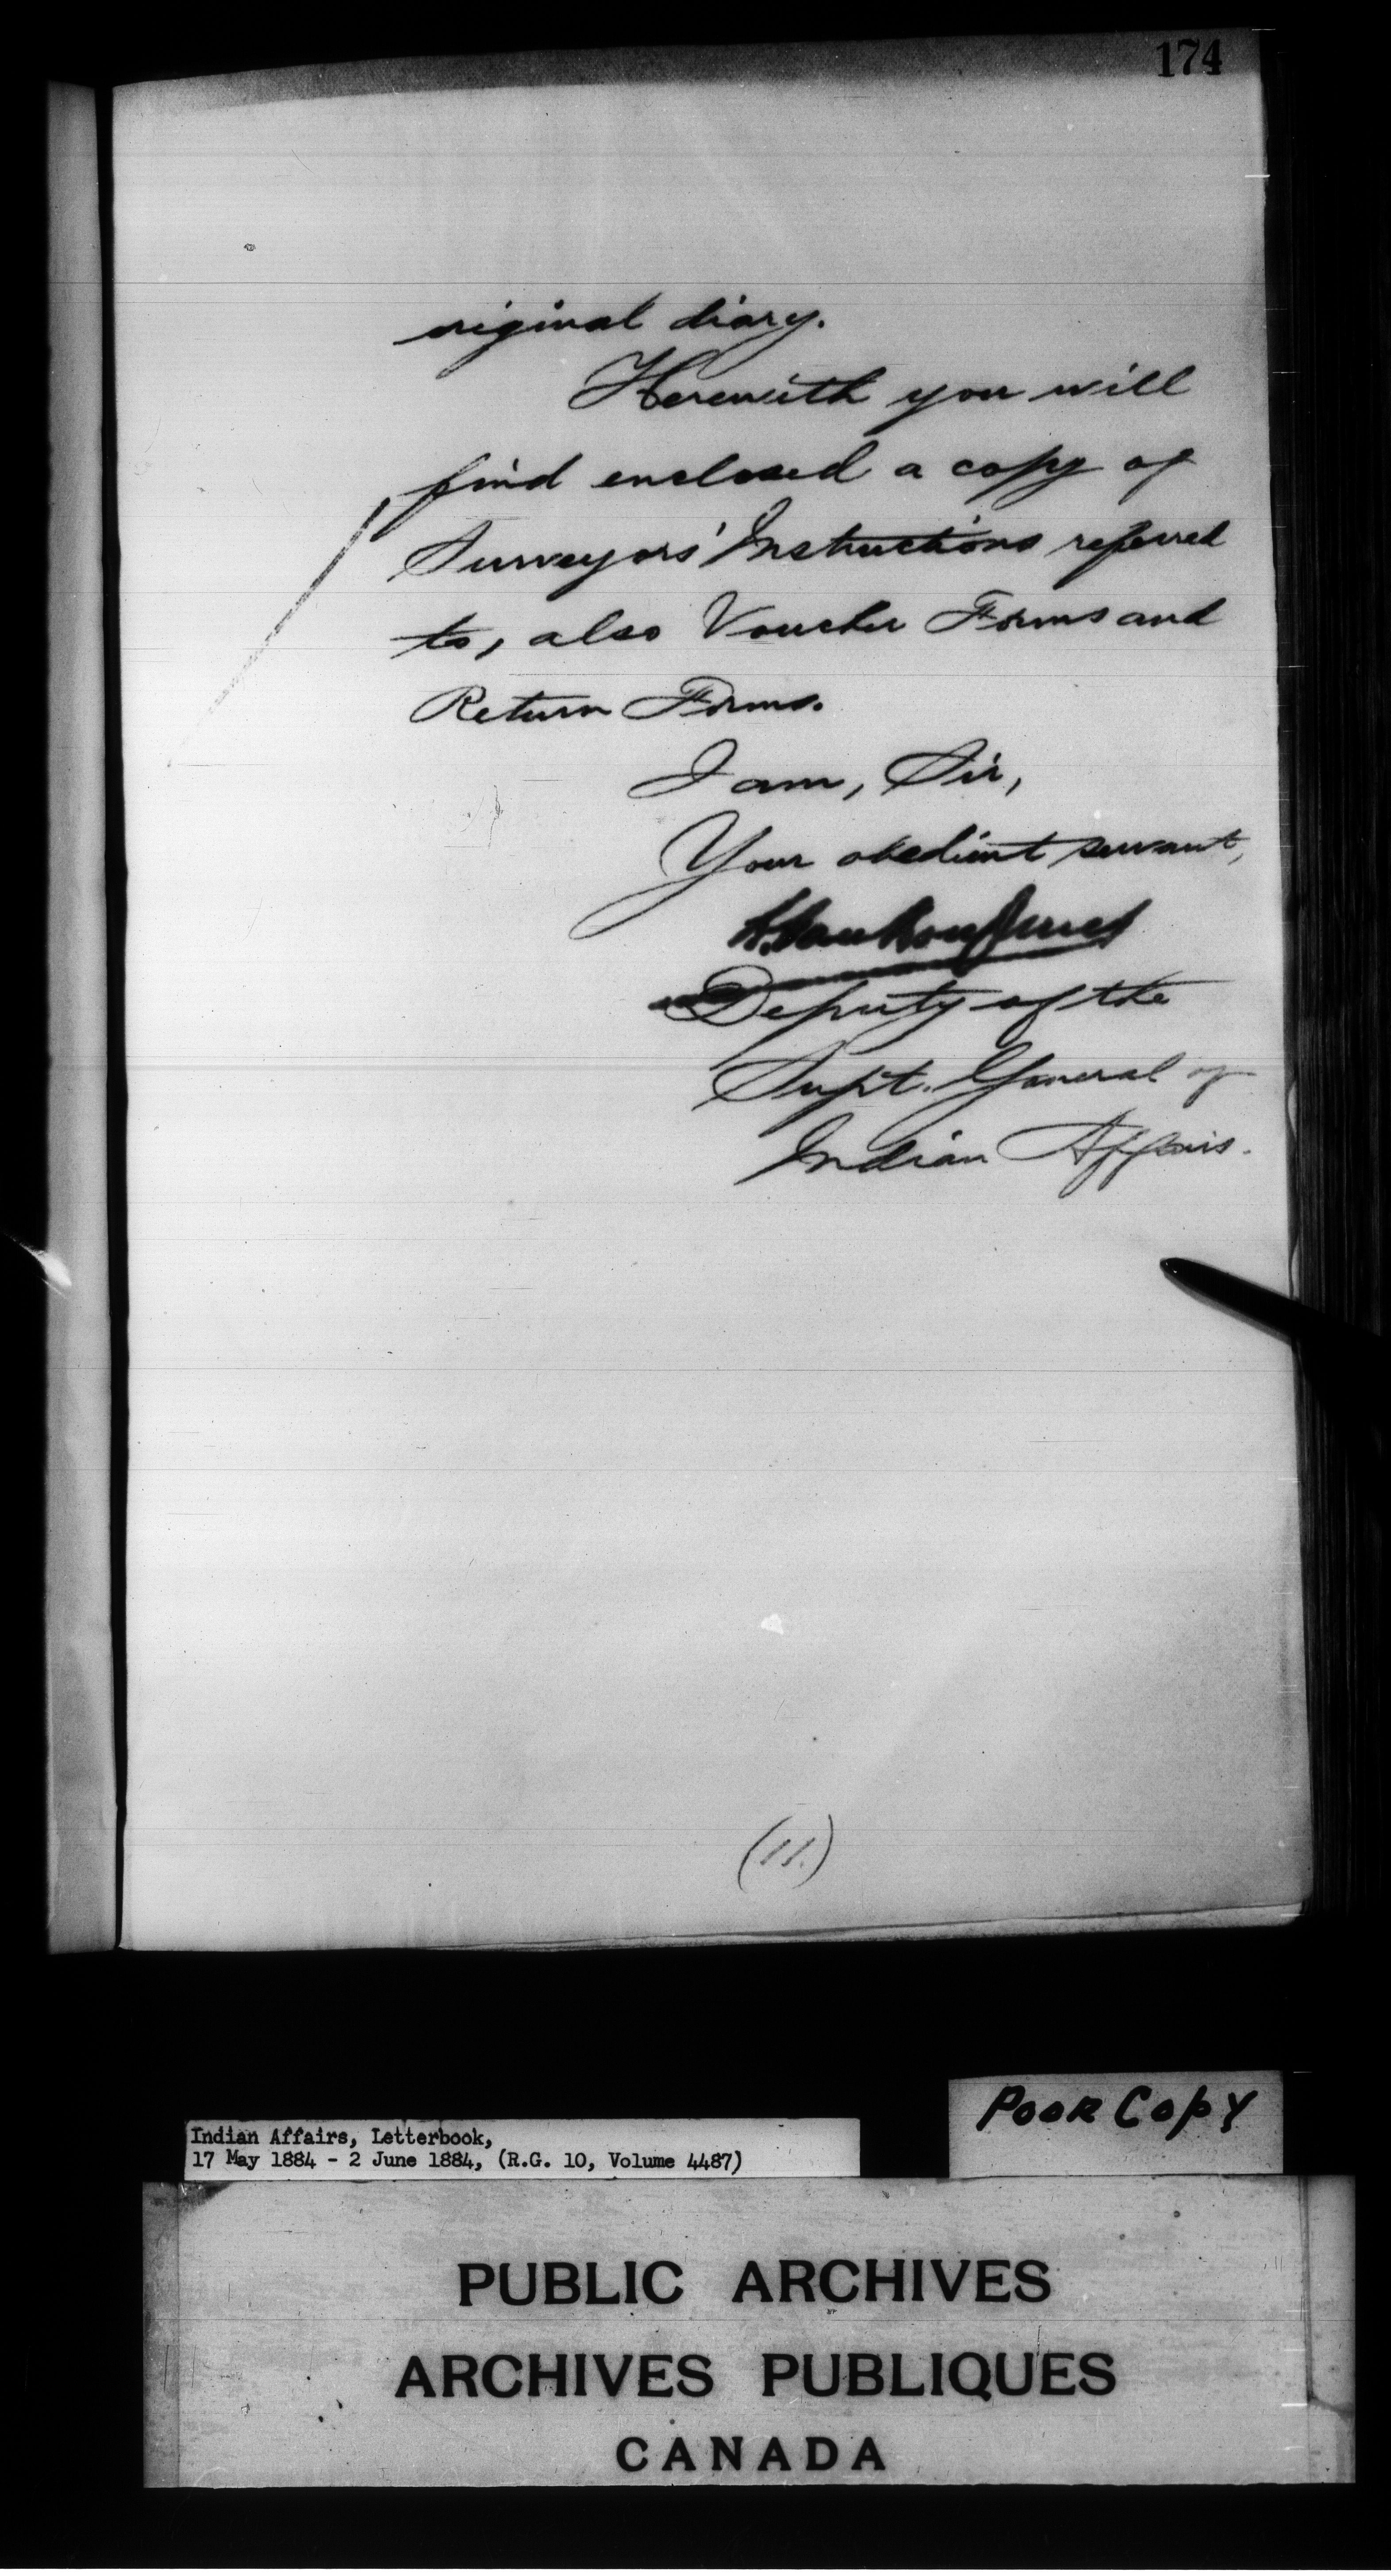 174
original diary.
Herewith you will
find enclosed a copy of
Surveyors' Instructions referred
to, also Voucher Forms and
Return Forms.
I am, Sir,
Your obedient servant,
Deputy of the
Supt. General of
Indian Affairs.
(11.)
POOR COPY
Indian Affairs, Letterbook,
17 May 1884 - 2 June 1884, (R.G. 10, Volume 4487)
PUBLIC ARCHIVES
ARCHIVES PUBLIQUES
CANADA